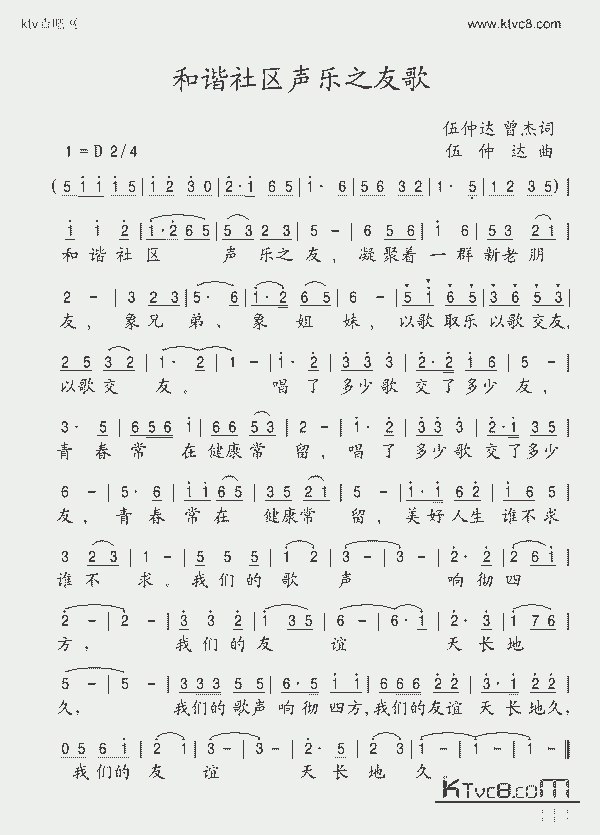 ktv
www.ktvc8.com
和谐社区声乐之友歌
伍仲达 曾杰词
1=D 2/4 伍 仲 达 曲
(5 1 1 1 5 | 1 2 3 0 | 2· 1 6 5 | 1· 6 | 5 6 3 2 | 1· 5 | 1 2 3 5) |
1 1 2 | 1· 2 6 5 | 5 3 2 3 | 5 - | 6 5 6 | 1 6 | 5 3 2 1 |
和 谐 社 区 声 乐之 友, 凝 聚着 一 群 新老 朋
2 - | 3 2 3 | 5· 6 | 1· 2 6 5 | 6 - | 5 1 6 5 | 3 6 5 3 |
友, 象兄 弟、 象 姐 妹, 以歌 取乐 以歌 交友,
2 5 3 2 | 1· 2 | 1 - | 1· 2 | 3 3 3 | 2· 2 1 6 | 5 - |
以歌 交 友。 唱 了 多少歌 交了多少 友,
3· 5 | 6 5 6 1 | 6 6 5 3 | 2 - | 1· 2 | 3 3 3 | 2· 1 3 5 |
青 春 常 在 健康常 留, 唱 了 多少歌 交了多少
6 - | 5· 6 | 1 1 6 5 | 3 5 2 1 | 5 - | 1· 1 6 2 | 1 6 5 |
友, 青 春 常在 健康常 留, 美好人生 谁不求
3 2 3 | 1 - | 5 5 5 | 1 2 | 3 - | 3 - | 2· 2 | 2 6 1 |
谁 不 求。 我 们 的 歌 声 响 彻 四
2 - | 2 - | 3 3 2 | 1 3 5 | 6 - | 6· 1 | 2· 3 | 1 7 6 |
方, 我 们 的 友 谊 天 长 地
5 - | 5 - | 3 3 3 5 | 6· 5 1 1 | 6 6 6 2 2 | 3· 1 2 2 |
久, 我们的歌声 响彻 四方,我们的友谊 天长地久,
0 5 5 6 1 | 2 1 | 3 - | 3 - | 2 5 | 2 3 | 1 - | 1 - ‖
我们的 友 谊 天 长 地 久
KTvc8.com